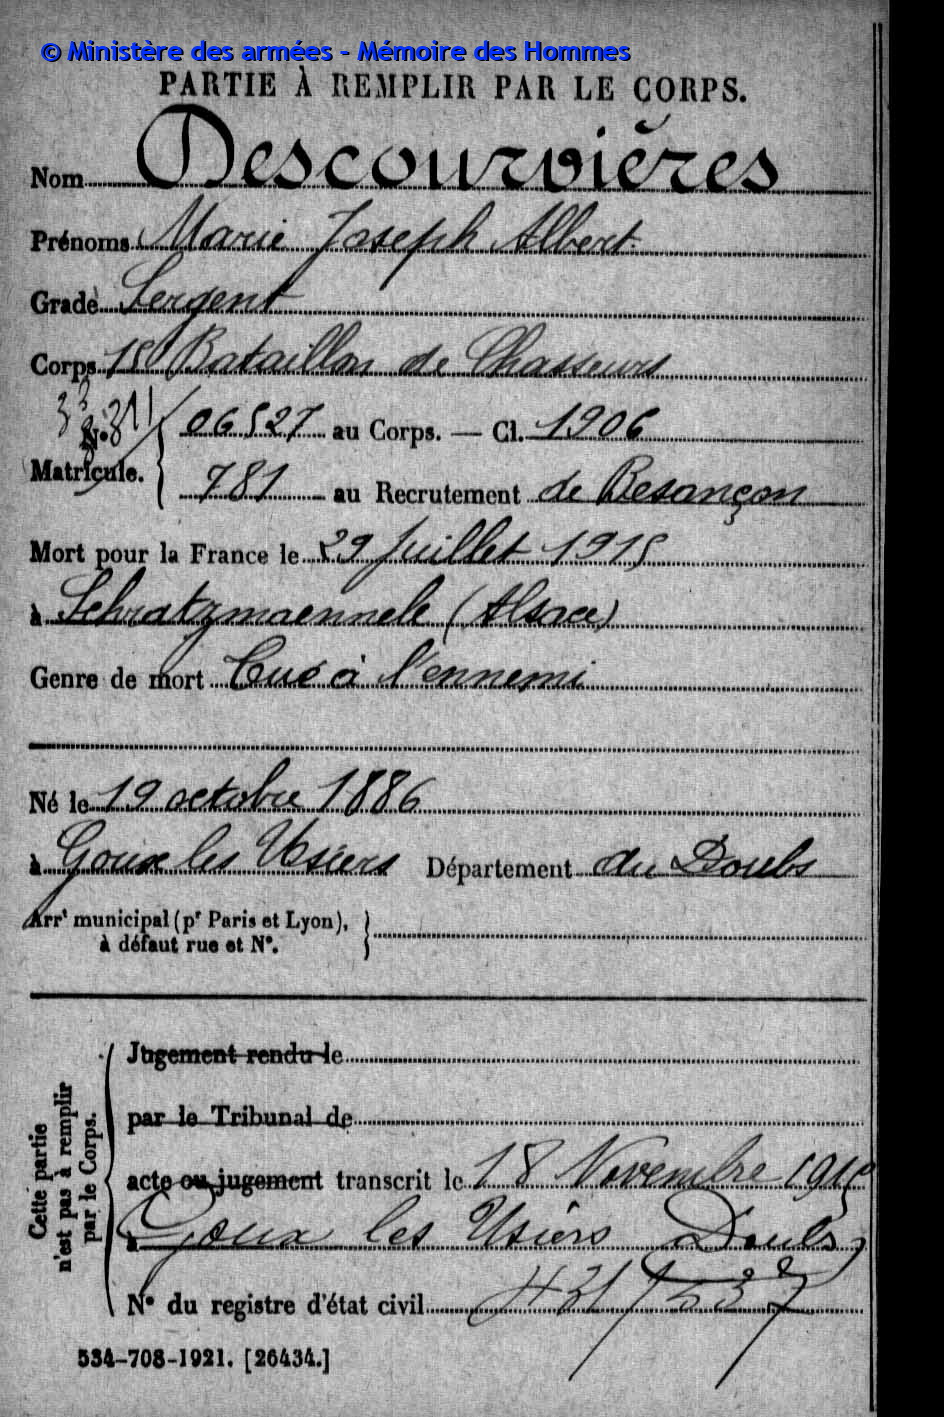 © Ministère des armées - Mémoire des Hommes
PARTIE À REMPLIR PAR LE CORPS.
Nom Descourvières
Prénoms Marie Joseph Albert
Grade Sergent
Corps 15e Bataillon de Chasseurs
N° 06527 au Corps. — Cl. 1906
Matricule. 781 au Recrutement de Besançon
Mort pour la France le 29 Juillet 1915
à Schratzmaennele (Alsace)
Genre de mort Tué à l'ennemi
Né le 19 octobre 1886
à Goux les Usiers Département du Doubs
Arrt municipal (pr Paris et Lyon),
à défaut rue et N°.
Cette partie
n'est pas à remplir
par le Corps.
Jugement rendu le
par le Tribunal de
acte ou jugement transcrit le 18 Novembre 1915
à Goux les Usiers Doubs
N° du registre d'état civil
534-708-1921. [26434.]